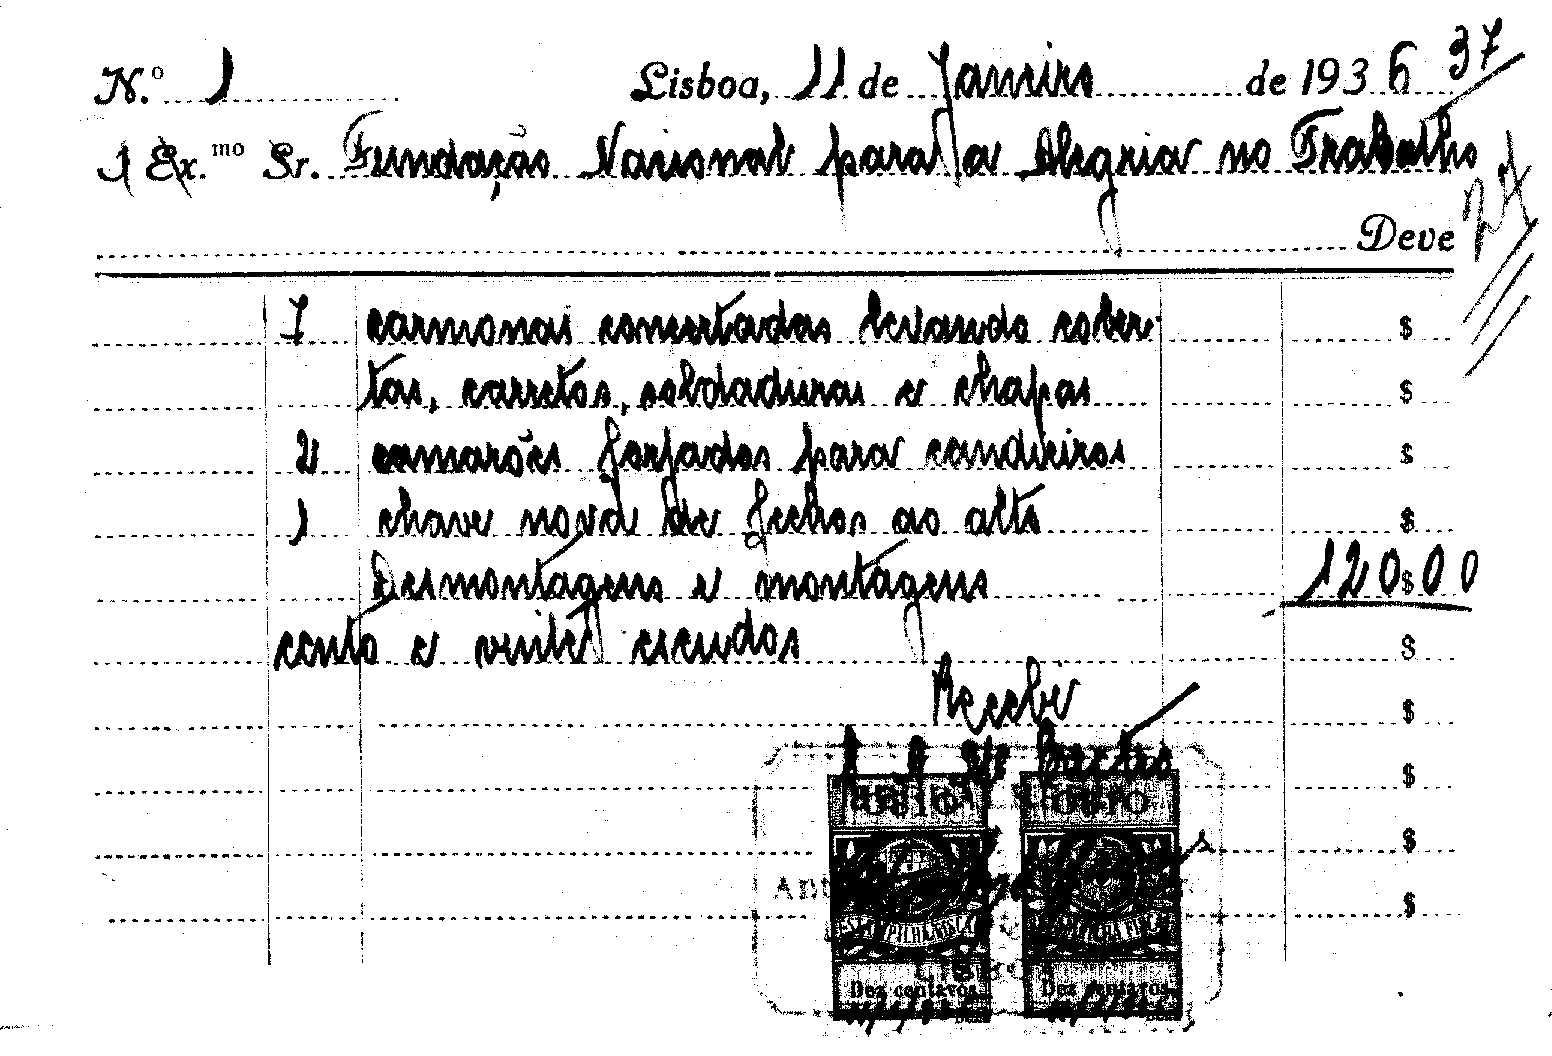 N.º 1 Lisboa, 11 de Janeiro de 1936 37
Ex.mo Sr. Fundação Nacional para a Alegria no Trabalho
Deve
7 carmonas concertadas levando cober-
tas, carretos, soldaduras e chapas
2 camarões forjados para candieiros
1 chave nova de fechos ao alto
Desmontagens e montagens 120$00
cento e vinte escudos
Recebi
Dez centavos Dez centavos